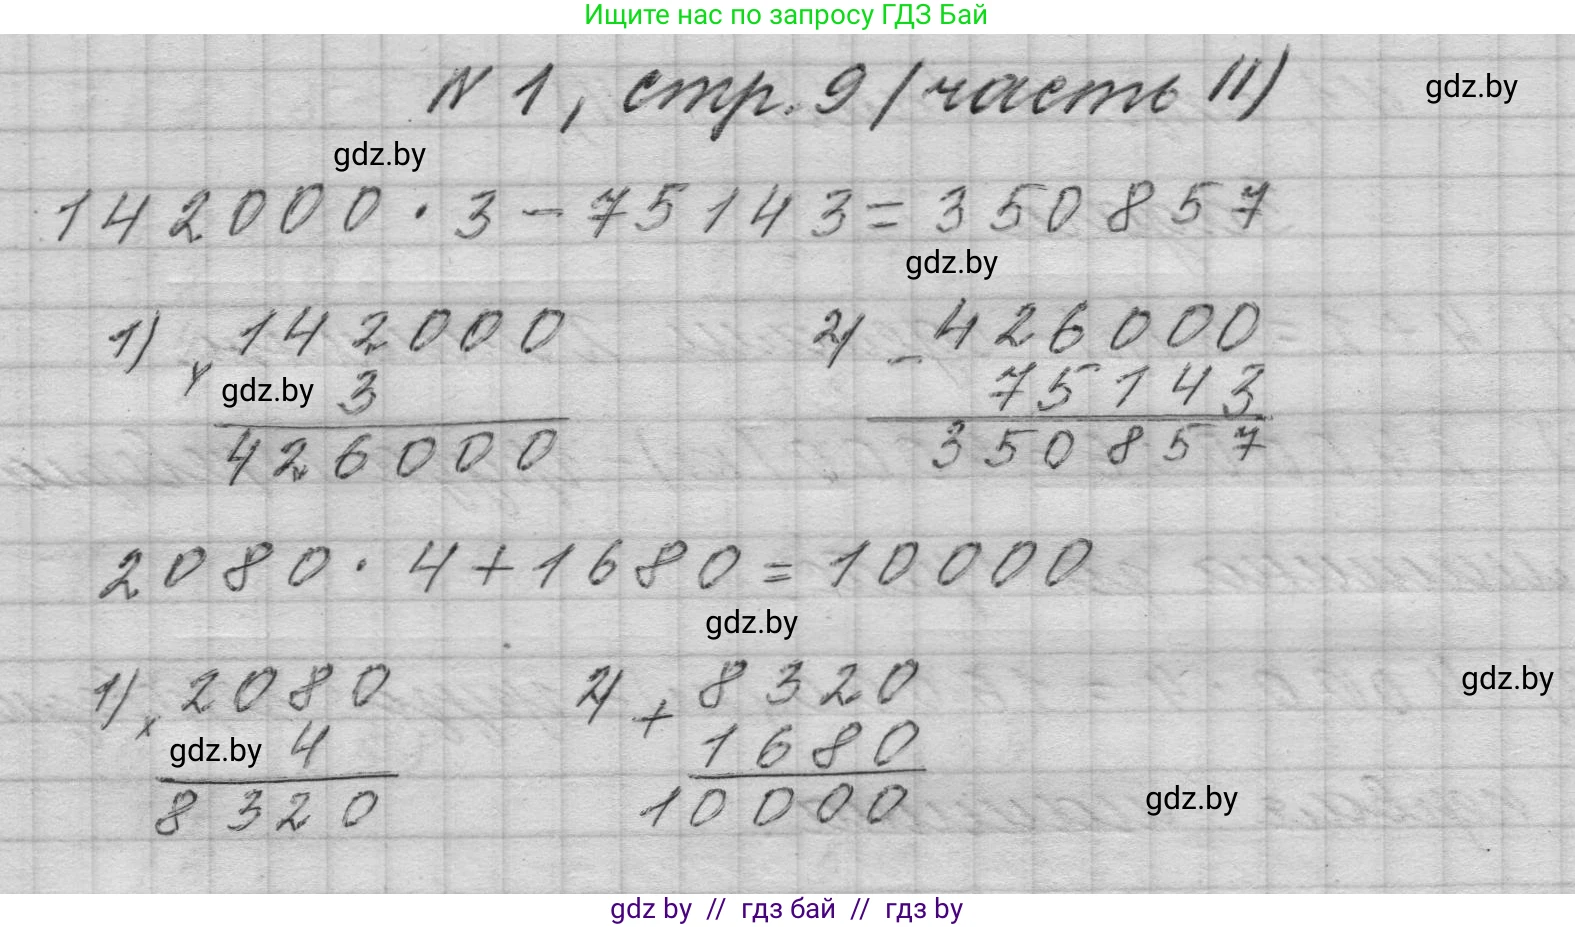 Ищите нас по запросу ГДЗ Бай
N 1, стр. 9 (часть II)
gdz.by
gdz.by
142000 · 3 - 75143 = 350857
gdz.by
1) x 142000
gdz.by 3
426000
2) - 426000
75143
350857
2080 · 4 + 1680 = 10000
gdz.by
1) x 2080
gdz.by 4
8320
2) + 8320
1680
10000
gdz.by
gdz.by
gdz by // гдз бай // гдз by